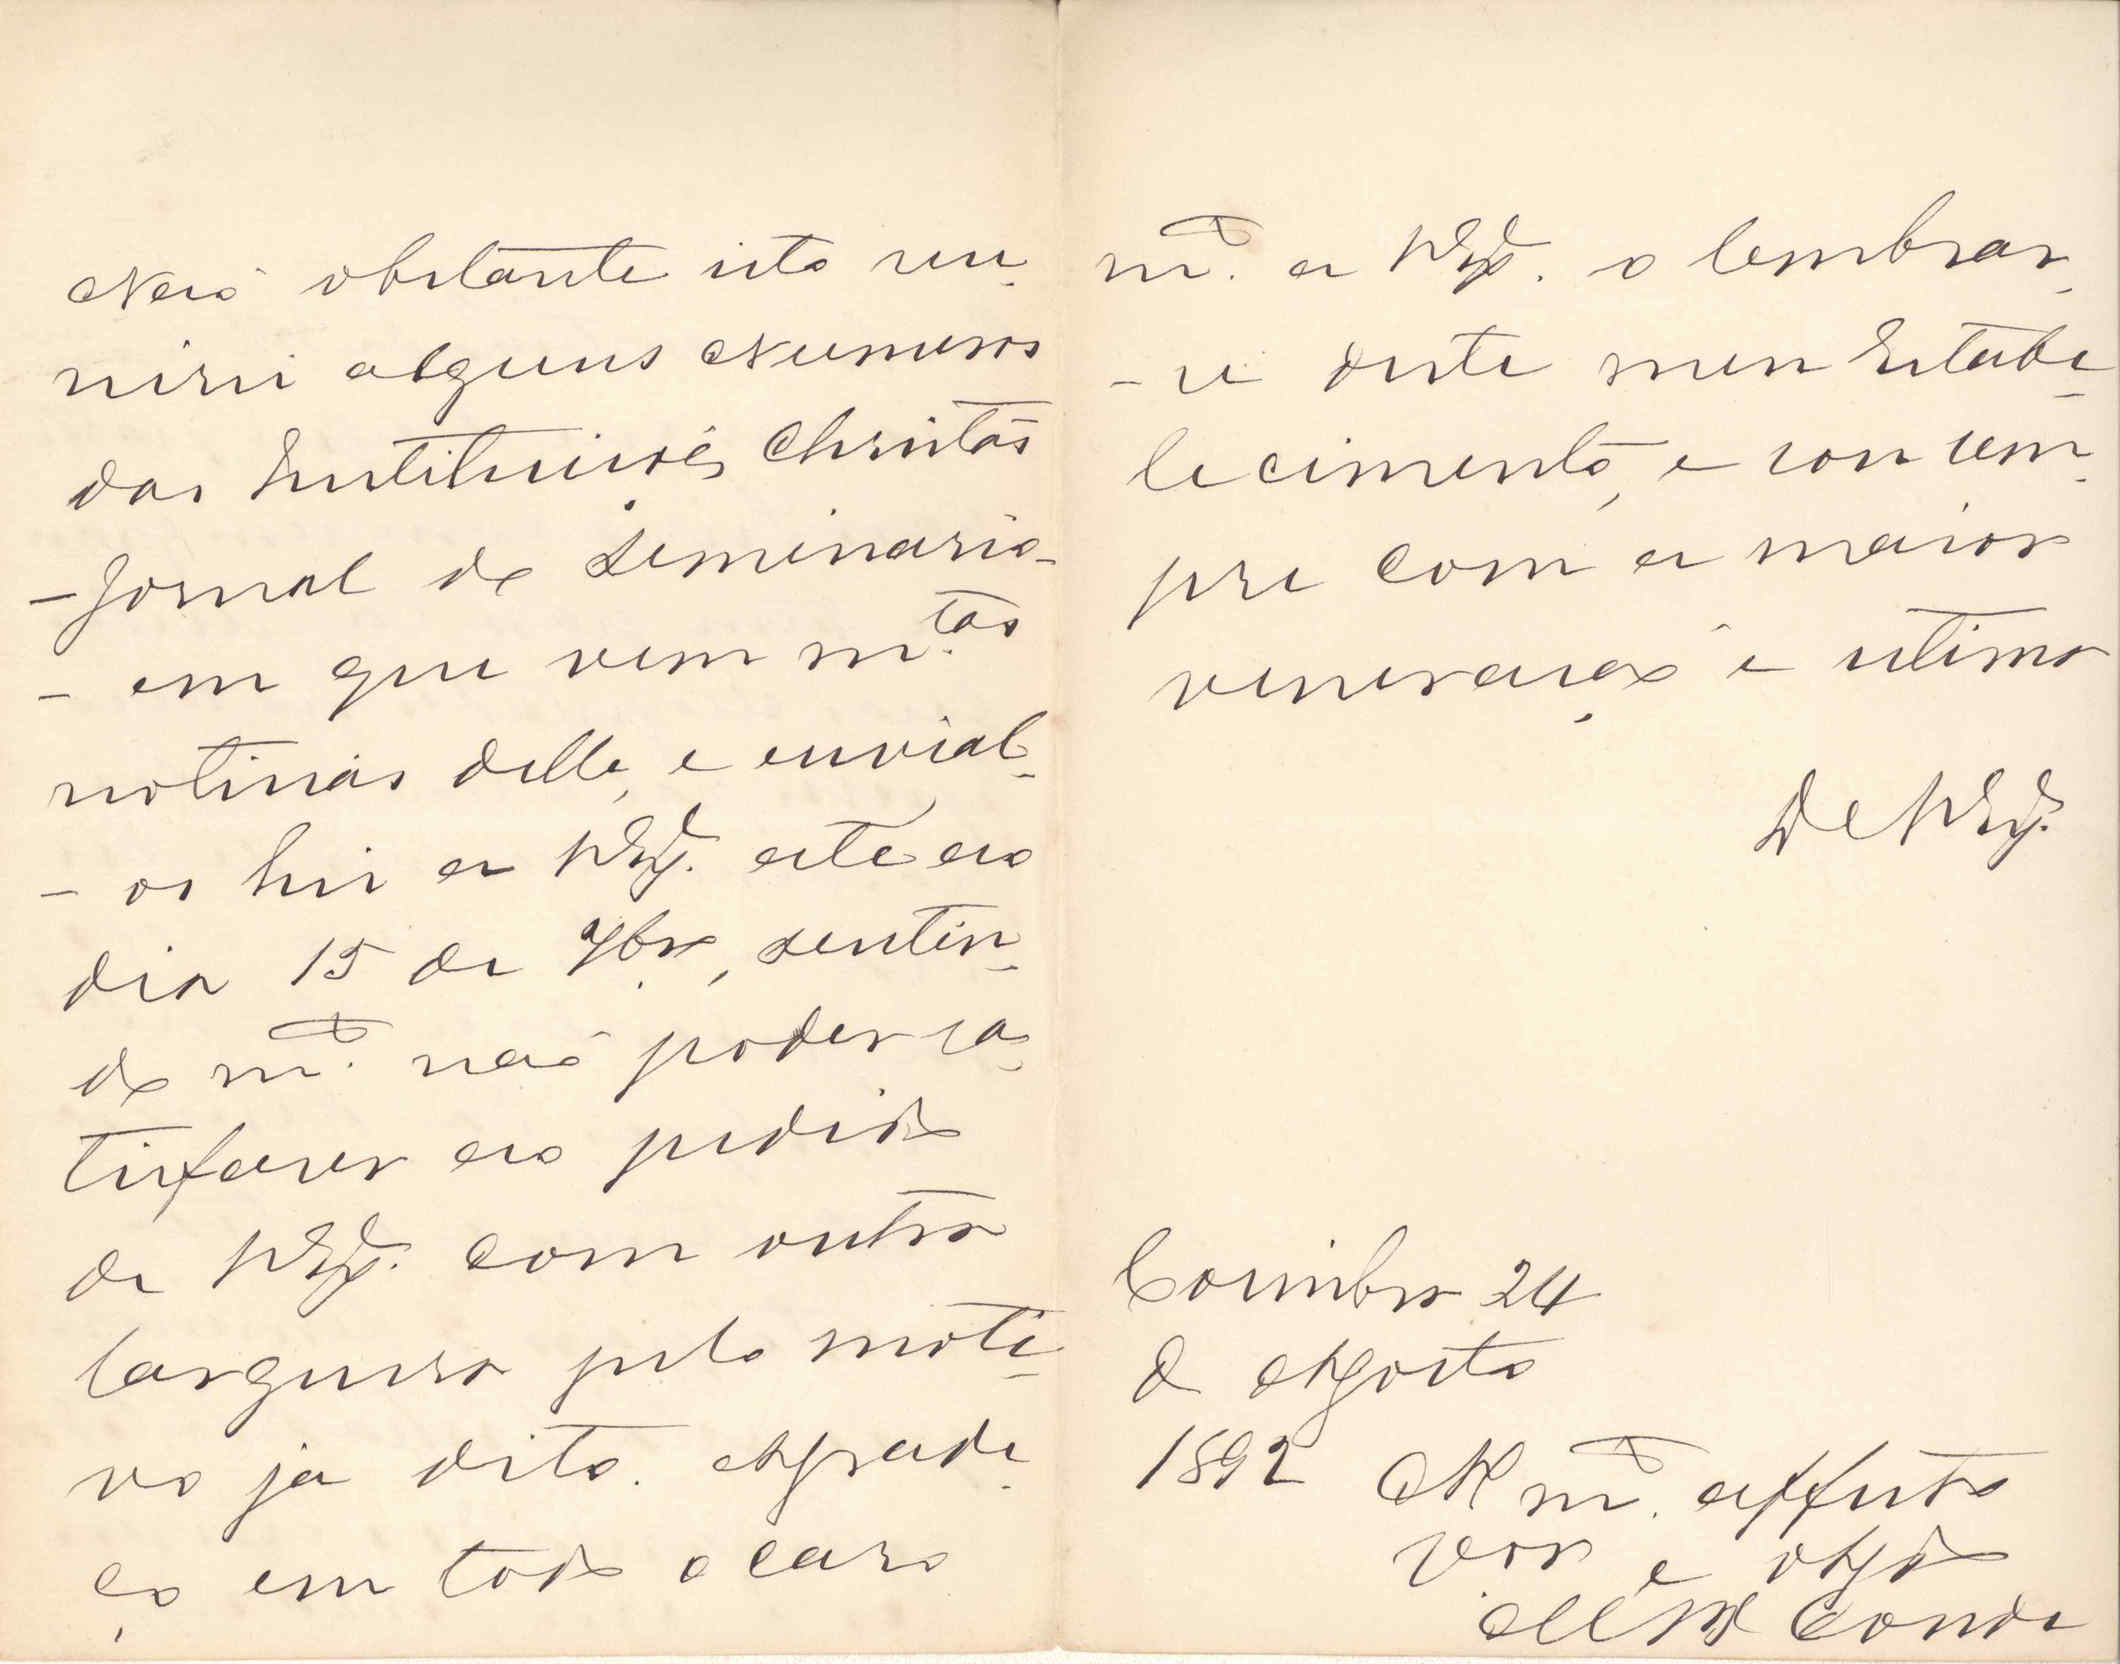 Não obstante isto reu-
nirei alguns Numeros
das Instituições Christãs
- Jornal do Seminario -
- em que vem m.tas
noticias delle, e envial-
- os hei a V. Ex.ª até ao
dia 15 de 7br.º, sentin-
do m.to não poder sa-
tisfazer ao pedido
de V. Ex.ª com outra
largueza pelo moti-
vo ja dito. Agrade-
ço em todo o caso
m.to a V. Ex.ª o lembrar-
- se deste meu Estabe-
lecimento, e sou sem-
pre com a maior
veneração e estima
De V. Ex.ª
Coimbra 24
d Agosto
1892
m.to affecto
Vor e obgdo
Conde